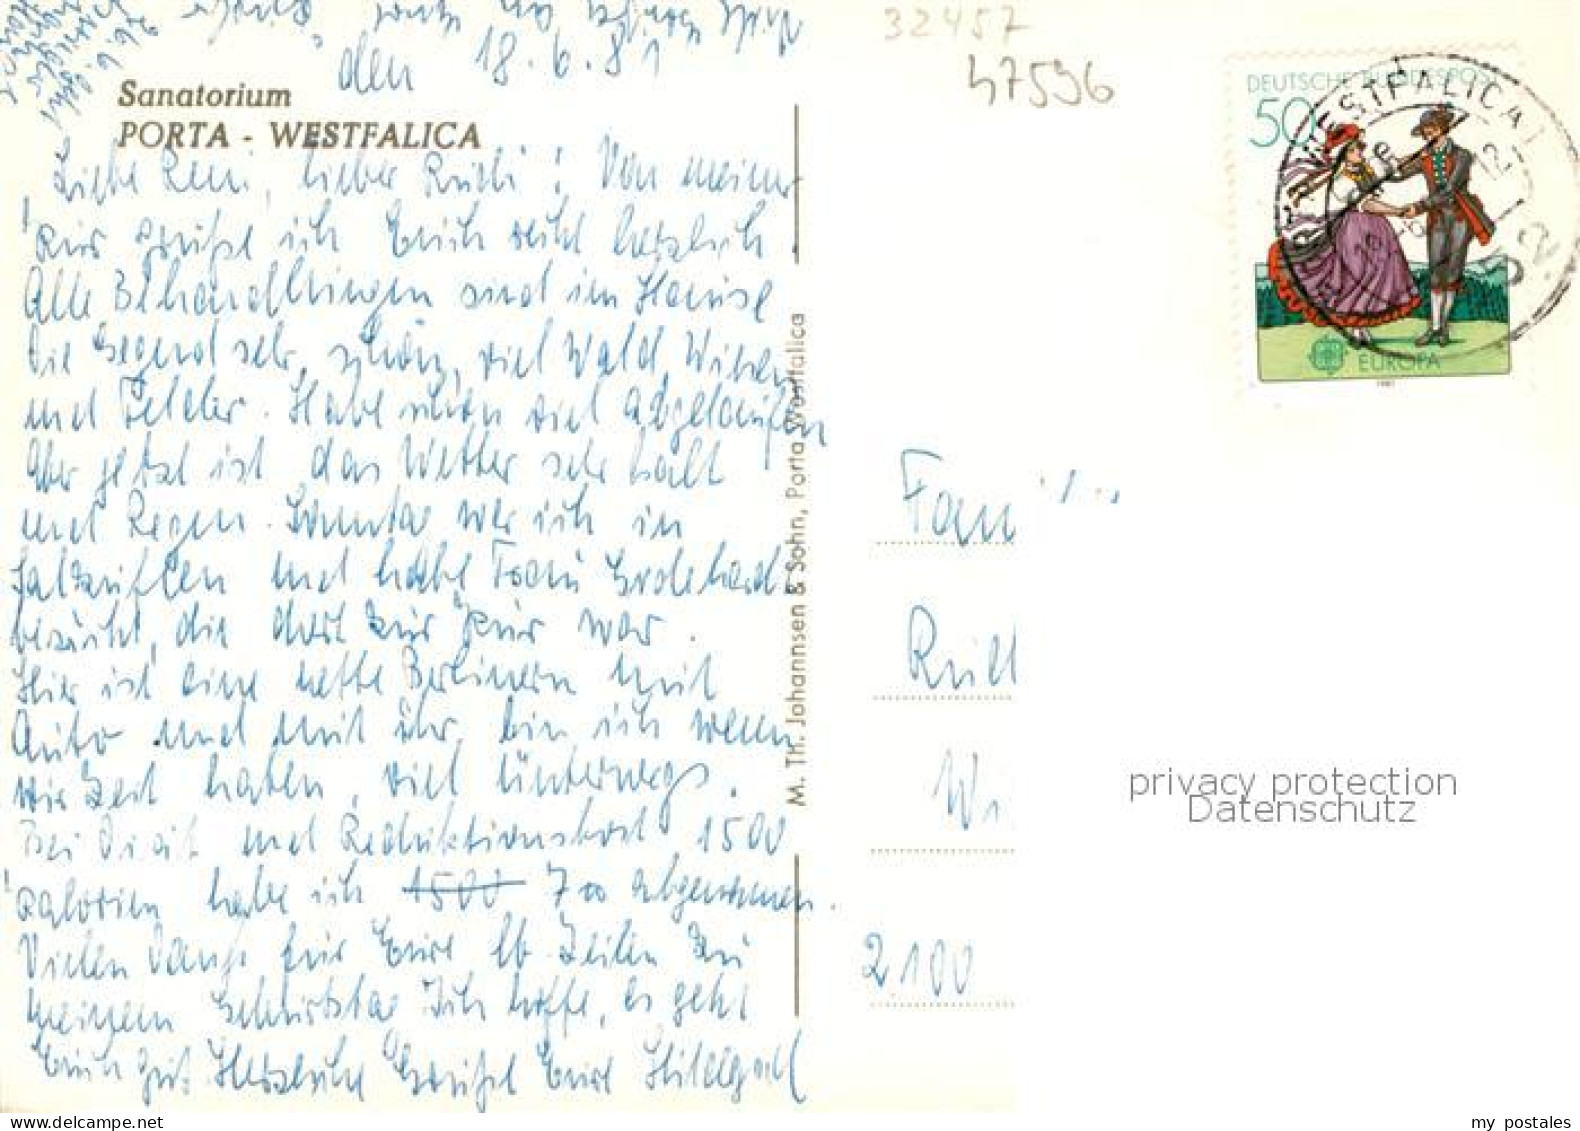 den 18.6.81
Sanatorium
PORTA - WESTFALICA
Liebe Reni, lieber Rudi! Von meiner
Kur grüße ich Euch recht herzlich
Alle Behandlungen sind im Hause
Die Gegend sehr schön, viel Wald, Wiesen
und Felder. Habe schon viel abgelaufen
Aber jetzt ist das Wetter sehr kalt
und Regen. Sonntag war ich in
Salzuflen und habe Frau
besucht, die dort zur Kur war.
Hier ist eine nette Berlinerin mit
Auto und mit ihr bin ich wenn
wir Zeit haben, viel unterwegs.
Bei Diät und Reduktionskost 1500
Kalorien habe ich 1500 700 abgenommen.
Vielen Dank für Eure lb. Zeilen zu
meinem Geburtstag Ich hoffe, es geht
Euch gut. Herzliche Grüße Eure Hildegard
M. Th. Johannsen & Sohn, Porta Westfalica
32457
47596
DEUTSCHE BUNDESPOST
50
EUROPA
1981
Fam
Rud
Wi
2100
privacy protection
Datenschutz
my postales